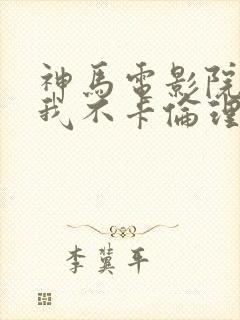 神馬電影院
我不卡倫理
李冀平